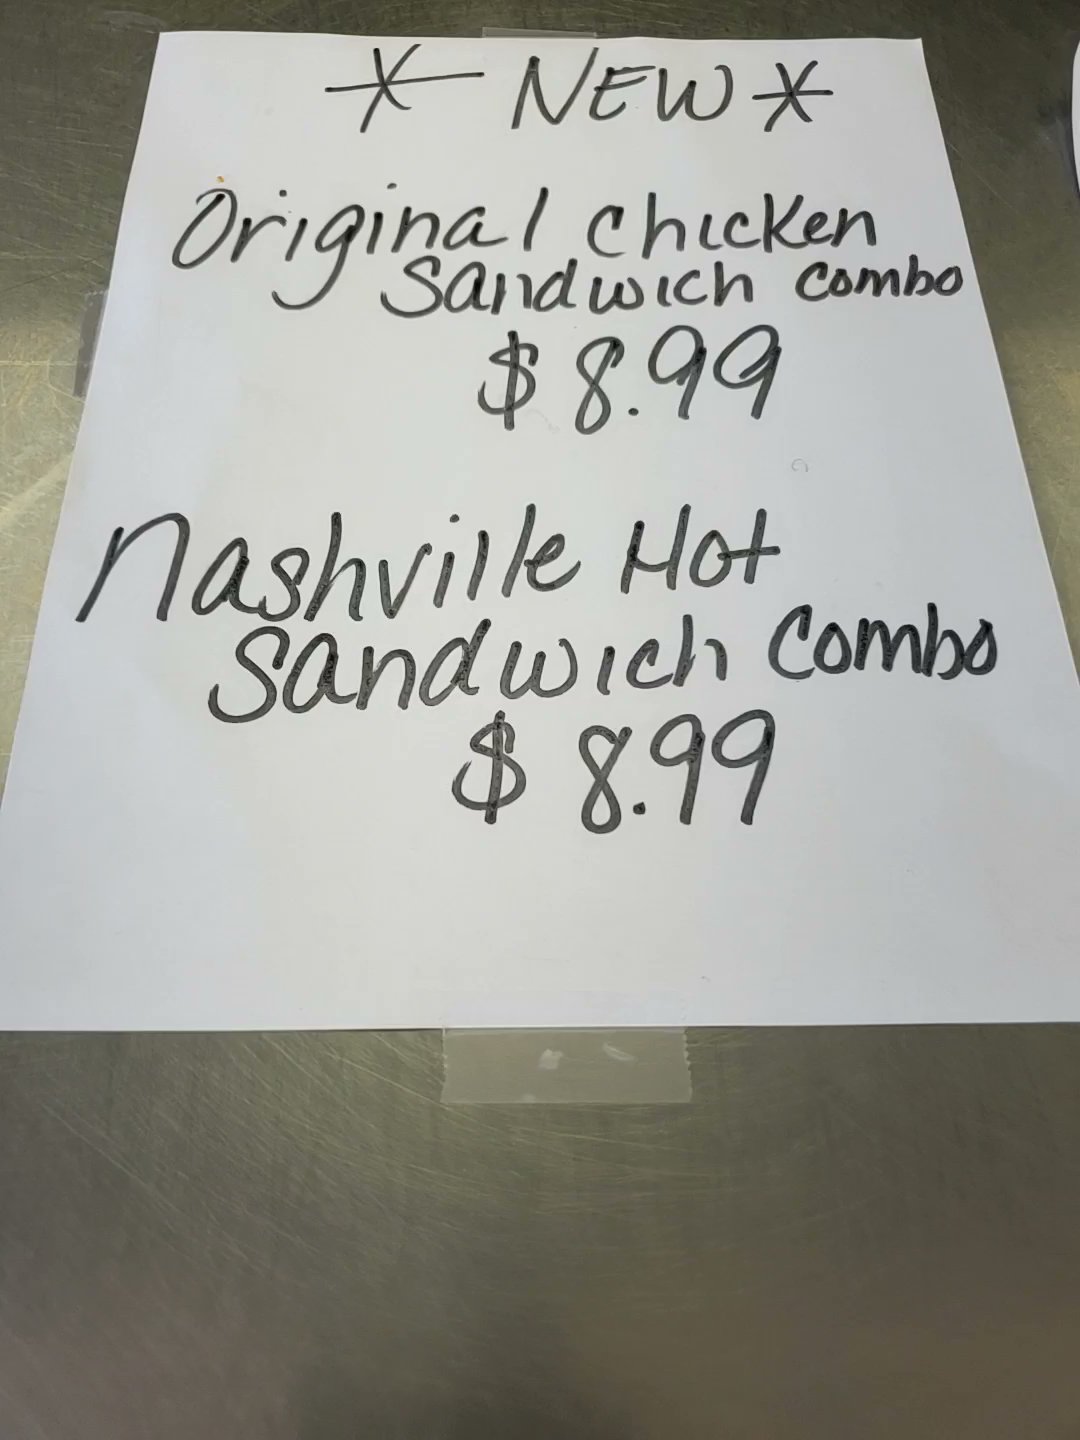 * NEW *
Original Chicken
Sandwich combo
$ 8.99
Nashville Hot
Sandwich Combo
$ 8.99